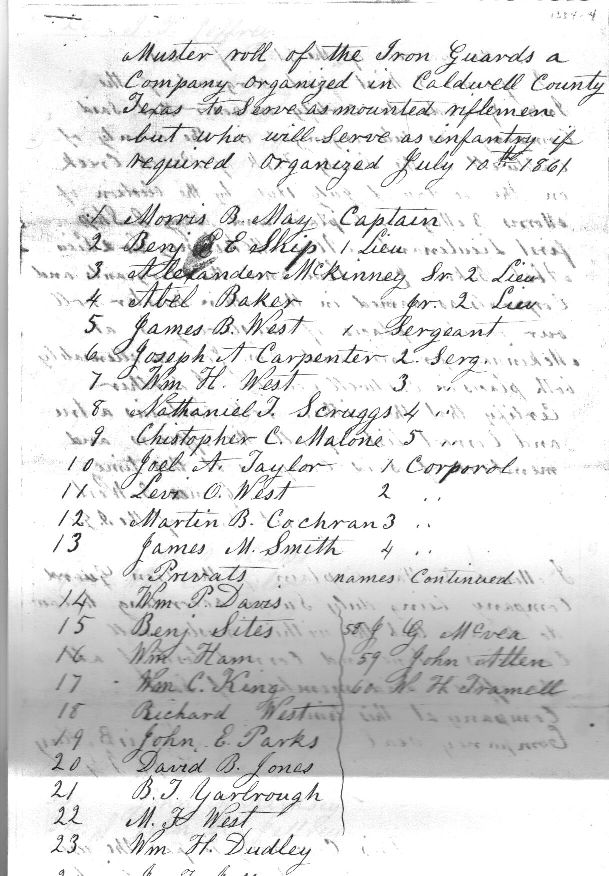 Muster roll of the Iron Guards a
Company organized in Caldwell County
Texas to serve as mounted riflemen
but who will serve as infantry if
required Organized July 10th 1861
1 Morris B. May Captain
2 Benj E Skip 1 Lieu
3 Alexander McKinney Sr. 2 Lieu
4 Abel Baker Jr. 2 Lieu
5 James B. West 1 Sergeant
6 Joseph A Carpenter 2 Serg.
7 Wm H. West 3
8 Nathaniel T. Scruggs 4 "
9 Chistopher C. Malone 5 "
10 Joel A. Taylor 1 Corporol
11 Levi O. West 2 "
12 Martin B. Cochran 3 "
13 James M. Smith 4 "
Privats names Continued
14 Wm P. Davis
15 Benj Sites 58 J G McVea
16 Wm Ham 59 John Allen
17 Wm C. King 60 W. H. Tramell
18 Richard West
19 John E. Parks
20 David B. Jones
21 B. T. Yarbrough
22 M. F. West
23 Wm H. Dudley